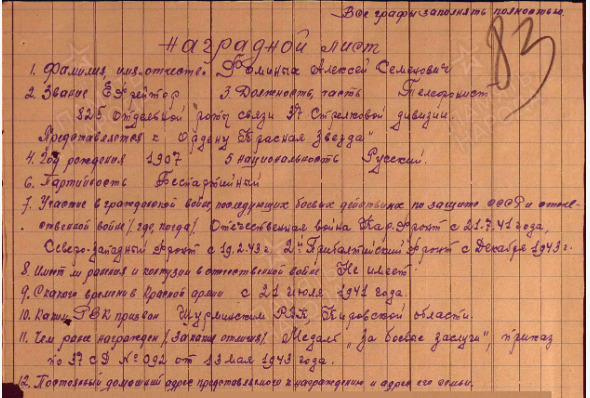 Все графы заполнять полностью.
83
Наградной лист
1. Фамилия, имя, отчество Фоминых Алексей Семенович
2. Звание Ефрейтор 3. Должность, часть Телефонист
825 отдельной роты связи 37 Стрелковой дивизии.
Представляется к Ордену „Красная Звезда"
4. Год рождения 1907 5 национальность Русский.
6. Партийность Беспартийный
7. Участие в гражданской войне, последующих боевых действиях по защите СССР и отече-
ственной войне /где, когда/ Отечественная война Кар. Фронт с 21.7.41 года,
Северо-западный Фронт с 19.2.43 г. 2й Прибалтийский Фронт с Декабря 1943 г.
8. Имеет ли ранения и контузии в отечественной войне Не имеет
9. С какого времени в Красной армии с 21 июля 1941 года.
10. Каким РВК призван Шурминским РВК, Кировской области.
11. Чем ранее награжден /За какие отличия/ Медаль „За боевые заслуги", приказ
по 37 СД № 092 от 13 мая 1943 года.
12. Постоянный домашний адрес представляемого к награждению и адрес его семьи.